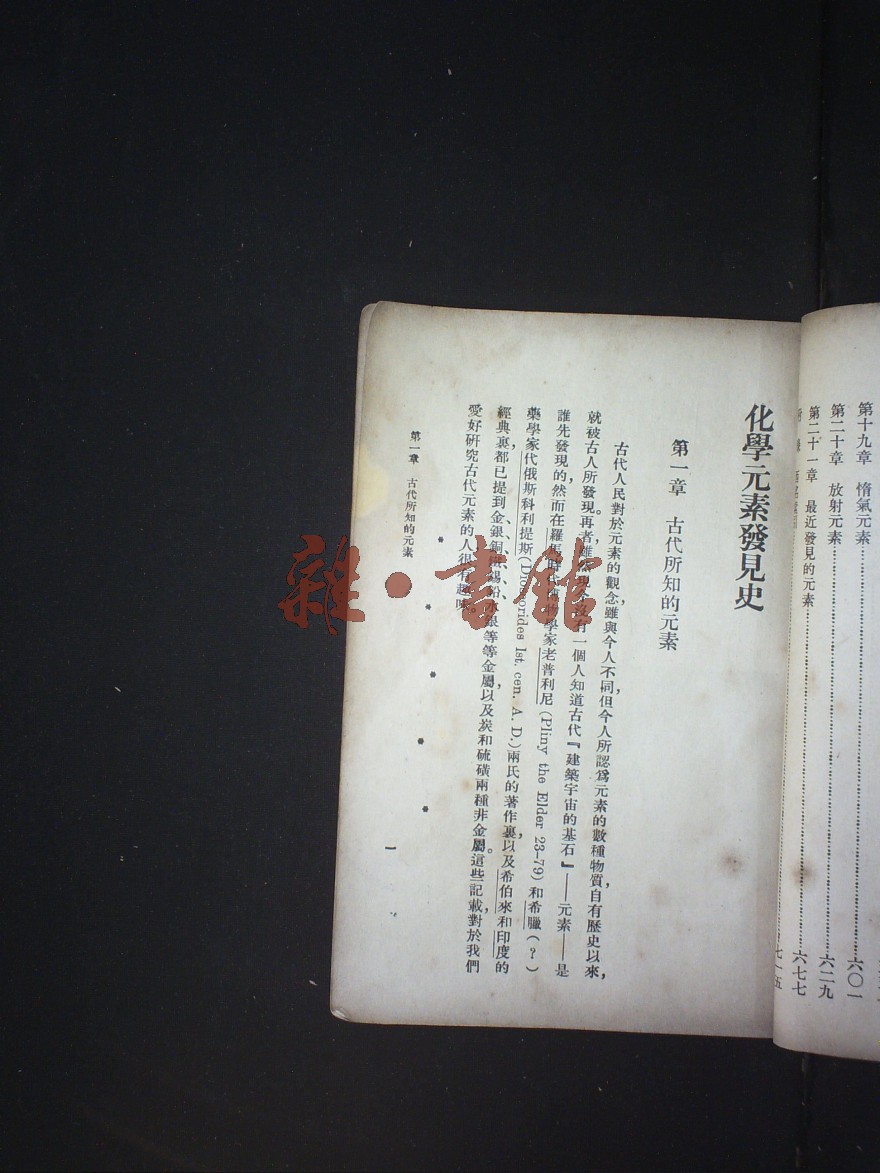 第十九章　惰氣元素……六〇一
第二十章　放射元素……六二九
第二十一章　最近發見的元素……六七七
七一五
化學元素發見史
第一章　古代所知的元素
古代人民對於元素的觀念，雖與今人不同，但今人所認爲元素的數種物質，自有歷史以來，
就被古人所發現。再者，雖然現今沒有一個人知道古代『建築宇宙的基石』——元素——是
誰先發現的，然而在羅馬時代博物學家老普利尼(Pliny the Elder 23–79)和希臘(？)
藥學家代俄斯科利提斯(Dioscorides Ist. cen. A. D.)兩氏的著作裏，以及希伯來和印度的
經典裏，都已提到金、銀、銅、鐵、錫、鉛、水銀等等金屬，以及炭和硫磺兩種非金屬。這些記載，對於我們
愛好研究古代元素的人很有趣味。
* * * * *
第一章　古代所知的元素
一
雜·書館